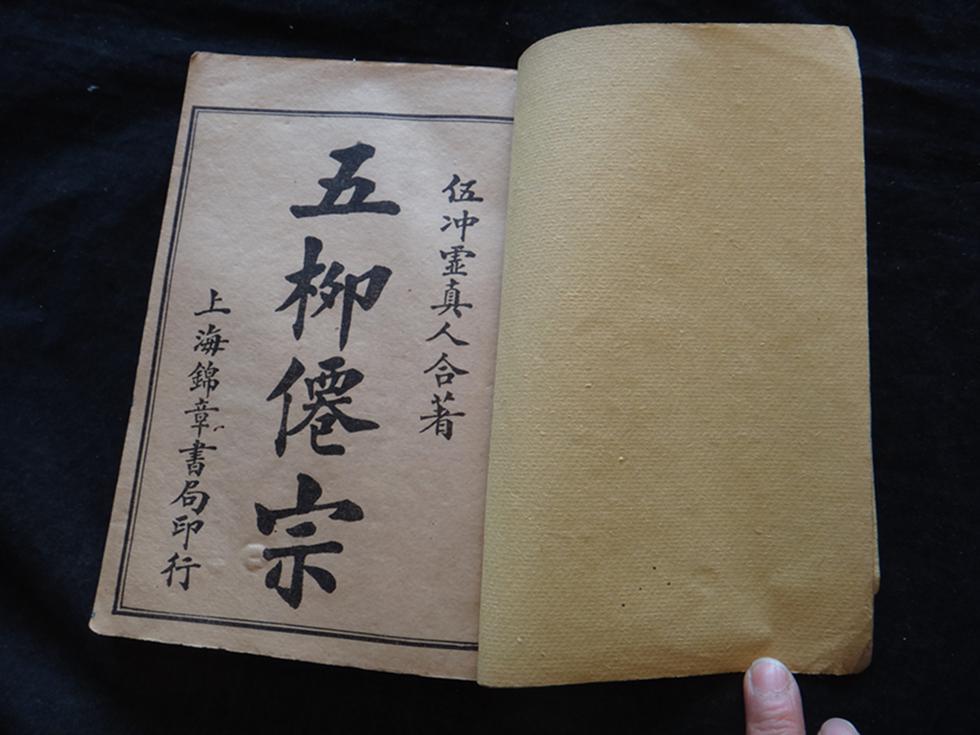 伍冲虛真人合著
五柳僊宗
上海錦章書局印行